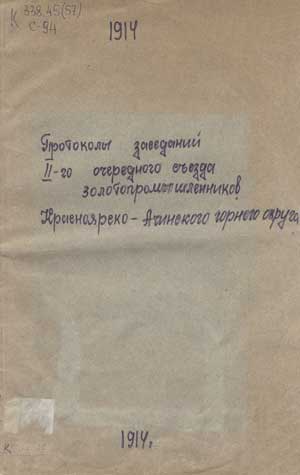 К 338.45(57)
С-94
1914
Протоколы заседаний
II-го очередного съезда
золотопромышленников
Красноярско-Ачинского горного округа
1914г.
К